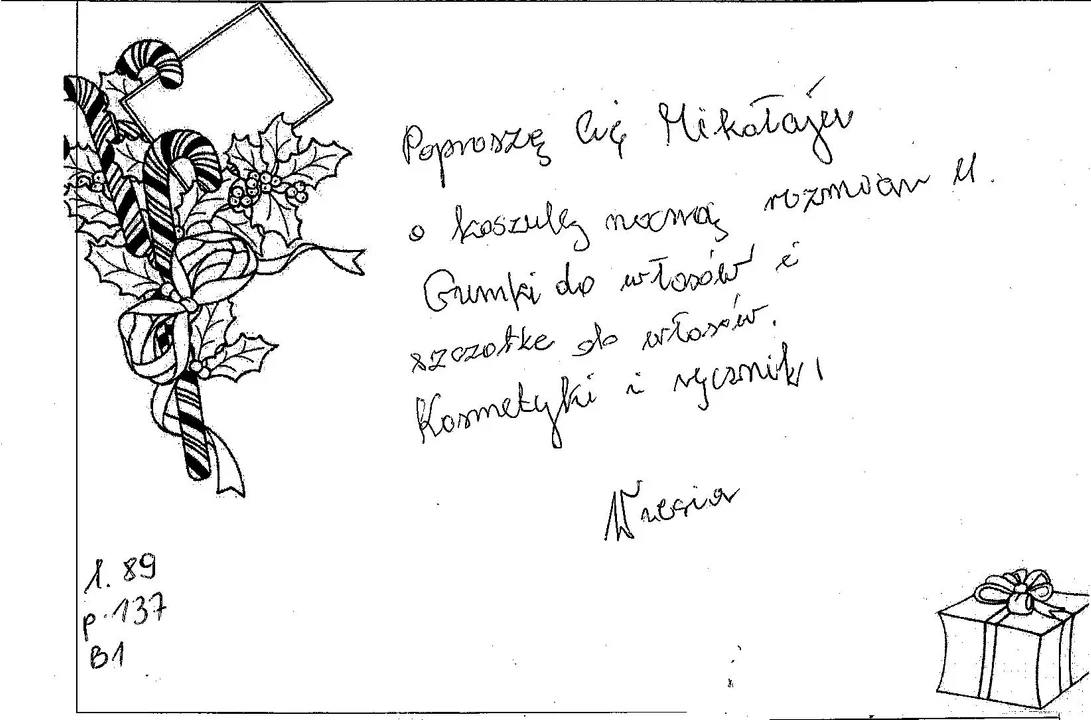 Poproszę Cię Mikołaju
o koszulę nocną rozmiar M.
Gumki do włosów i
szczotkę do włosów.
Kosmetyki i ręczniki
1. 89
p. 137
B1